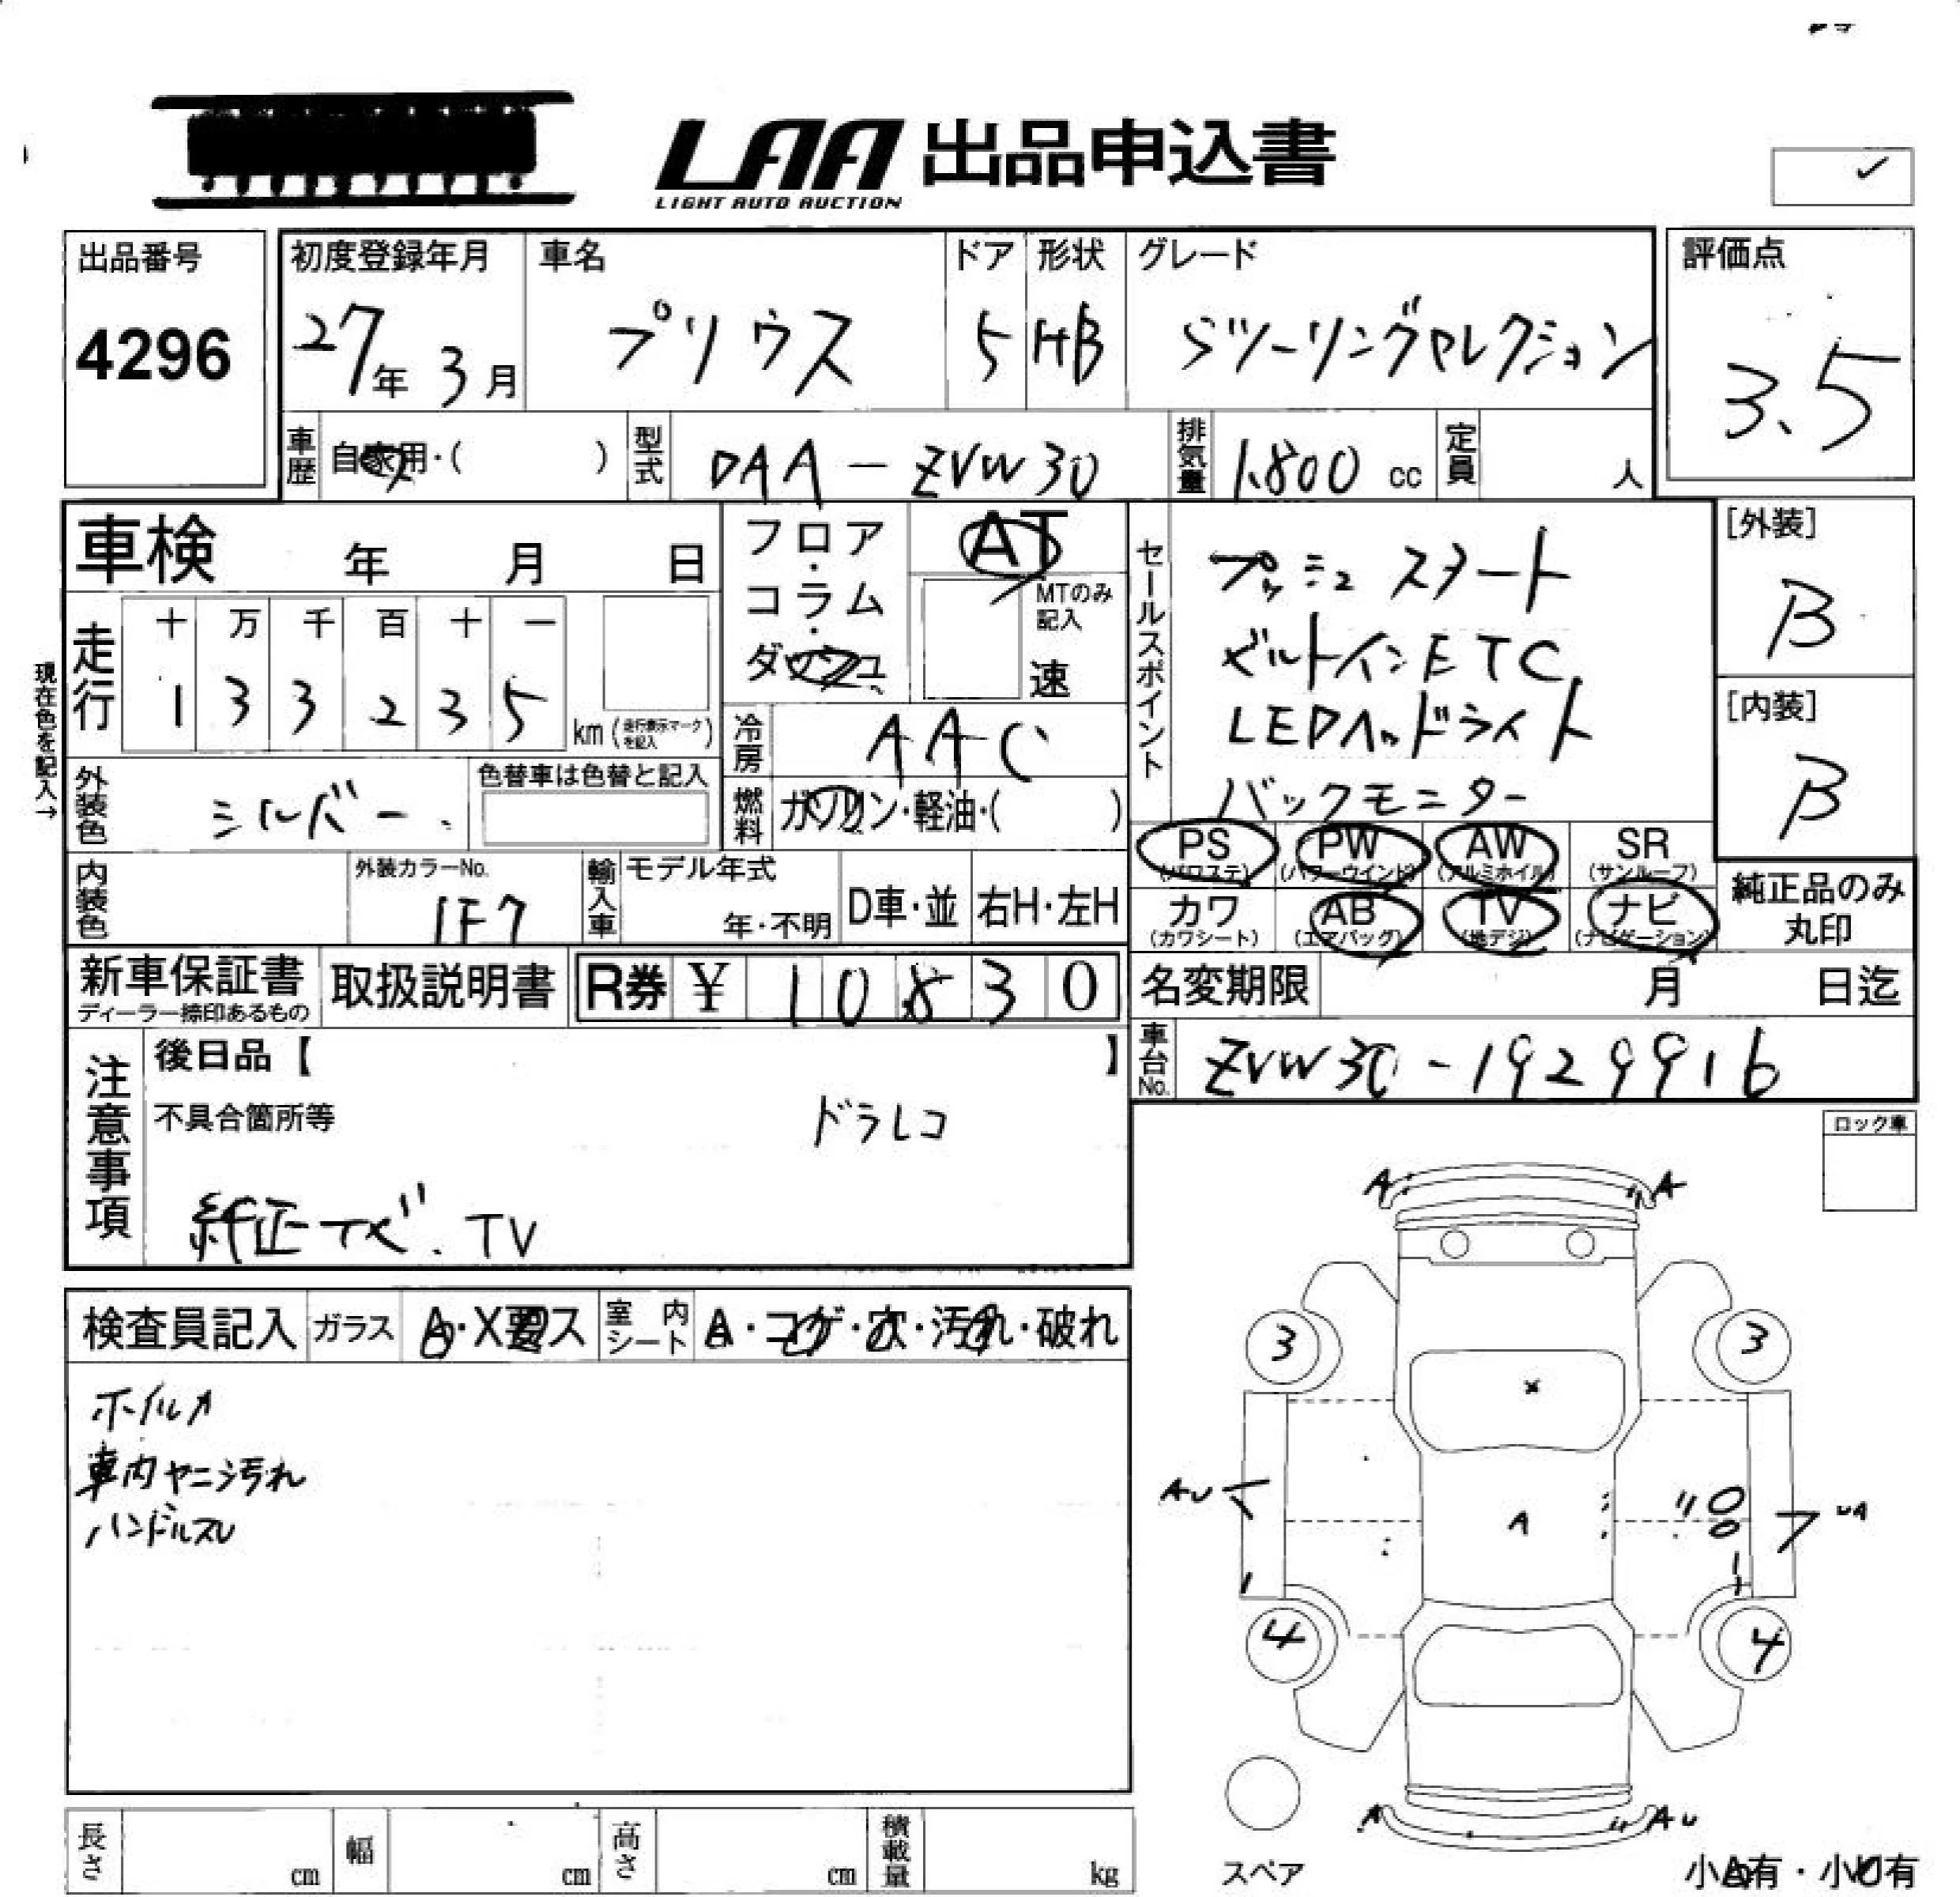 LAA 出品申込書
LIGHT AUTO AUCTION
出品番号
4296
初度登録年月
27年 3月
車名
プリウス
ドア
5
形状
HB
グレード
Sツーリングセレクション
評価点
3.5
車歴
自家用・( )
型式
DAA-ZVW30
排気量
1.800 cc
定員
人
車検 年 月 日
フロア・コラム・ダッシュ
AT
MTのみ記入
速
セールスポイント
プッシュスタート
ビルトインETC
LEDヘッドライト
バックモニター
[外装]
B
[内装]
B
現在色を記入→
走行
十 万 千 百 十 一
1 3 3 2 3 5
km (走行表示マークを記入)
冷房
AAC
外装色
シルバー
色替車は色替と記入
燃料
ガソリン・軽油・( )
PS
(パワステ)
PW
(パワーウインド)
AW
(アルミホイル)
SR
(サンルーフ)
カワ
(カワシート)
AB
(エアバッグ)
TV
(地デジ)
ナビ
(ナビゲーション)
純正品のみ
丸印
内装色
外装カラーNo.
1F7
輸入車
モデル年式
年・不明
D車・並
右H・左H
新車保証書
ディーラー捺印あるもの
取扱説明書
R券 ¥ 10830
名変期限 月 日迄
車台No.
ZVW30-1929916
注意事項
後日品【 】
不具合箇所等
ドラレコ
純正ナビ.TV
ロック車
検査員記入
ガラス
A・X要リス
室内シート
A・コゲ・穴・汚れ・破れ
ホイルA
車内ヤニ汚れ
ハンドルスレ
A A
3 3
x
AU
A
UA
4 4
A AU
スペア
小A有・小U有
長さ cm
幅 cm
高さ cm
積載量 kg